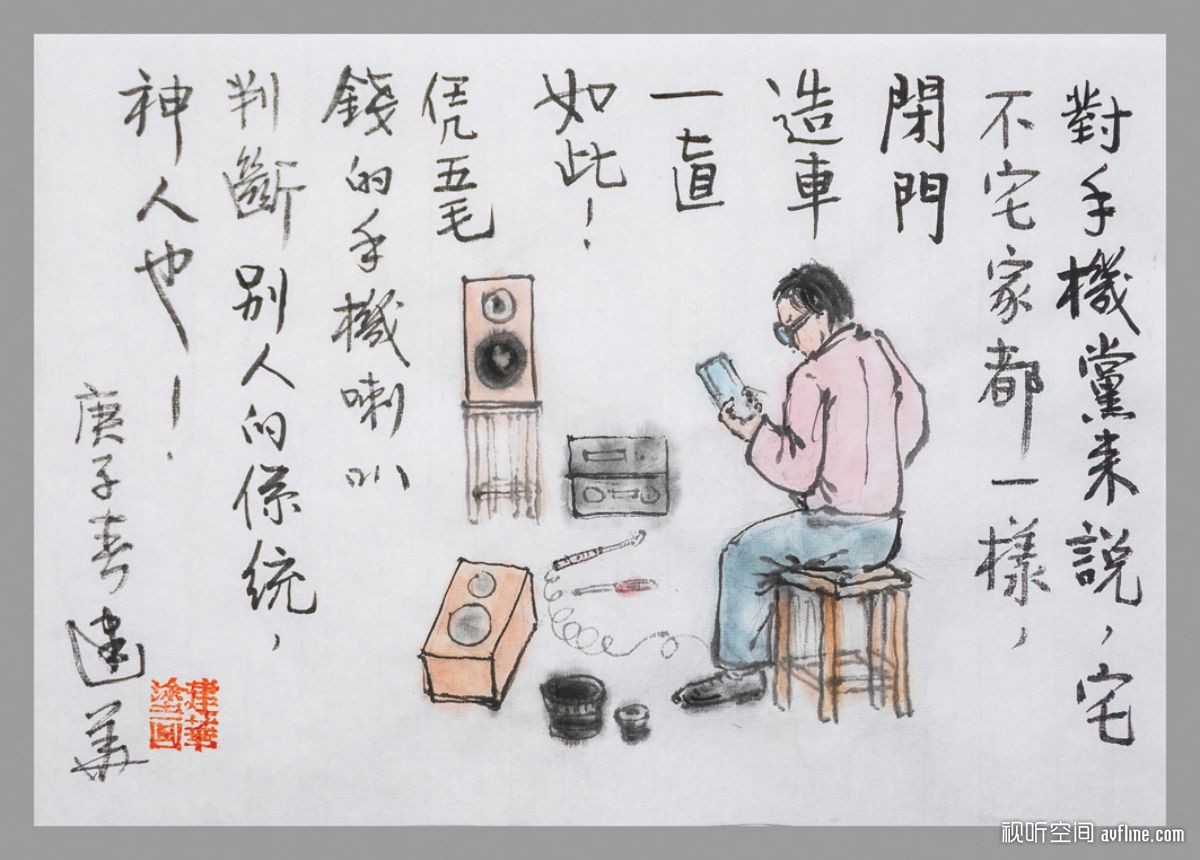 對手機黨来説，宅
不宅家都一樣，
閉門
造車
一直
如此！
凭五毛
錢的手機喇叭
判斷别人的係統，
神人也！
庚子春建華
建華
塗画
视听空间 avfline.com